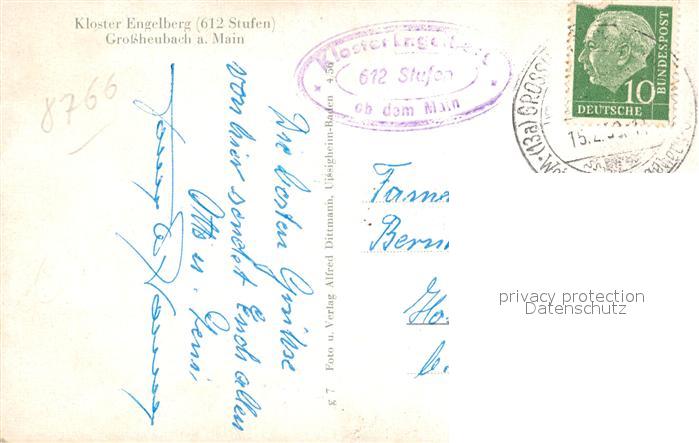 Kloster Engelberg (612 Stufen)
Großheubach a. Main
8266
Kloster Engelberg
612 Stufen
ob dem Main
DEUTSCHE
BUNDESPOST
10
(13a) GROSSH
15.2.
Die besten Grüße
von hier sendet Euch allen
Otto u. Leni
g 7 Foto u. Verlag Alfred Dittmann, Uissigheim-Baden 4.56
Fame
Bern
Ho
privacy protection
Datenschutz